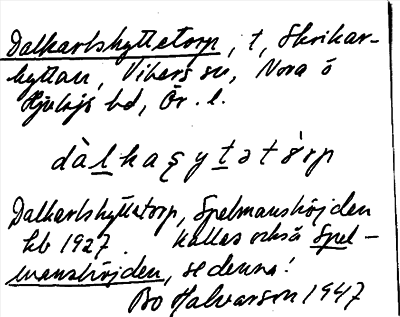 Dalkarlshyttetorp, t, Skrikar-
hyttan, Vikers sn, Nora o
Hjulsjö bd, Ör. l.
dàl̲kaşyt̲ətòrp
Dalkarlshyttetorp, Spelmanshöjden
hb 1927. Kallas också Spel-
manshöjden, se denna!
Bo Halvarson 1947